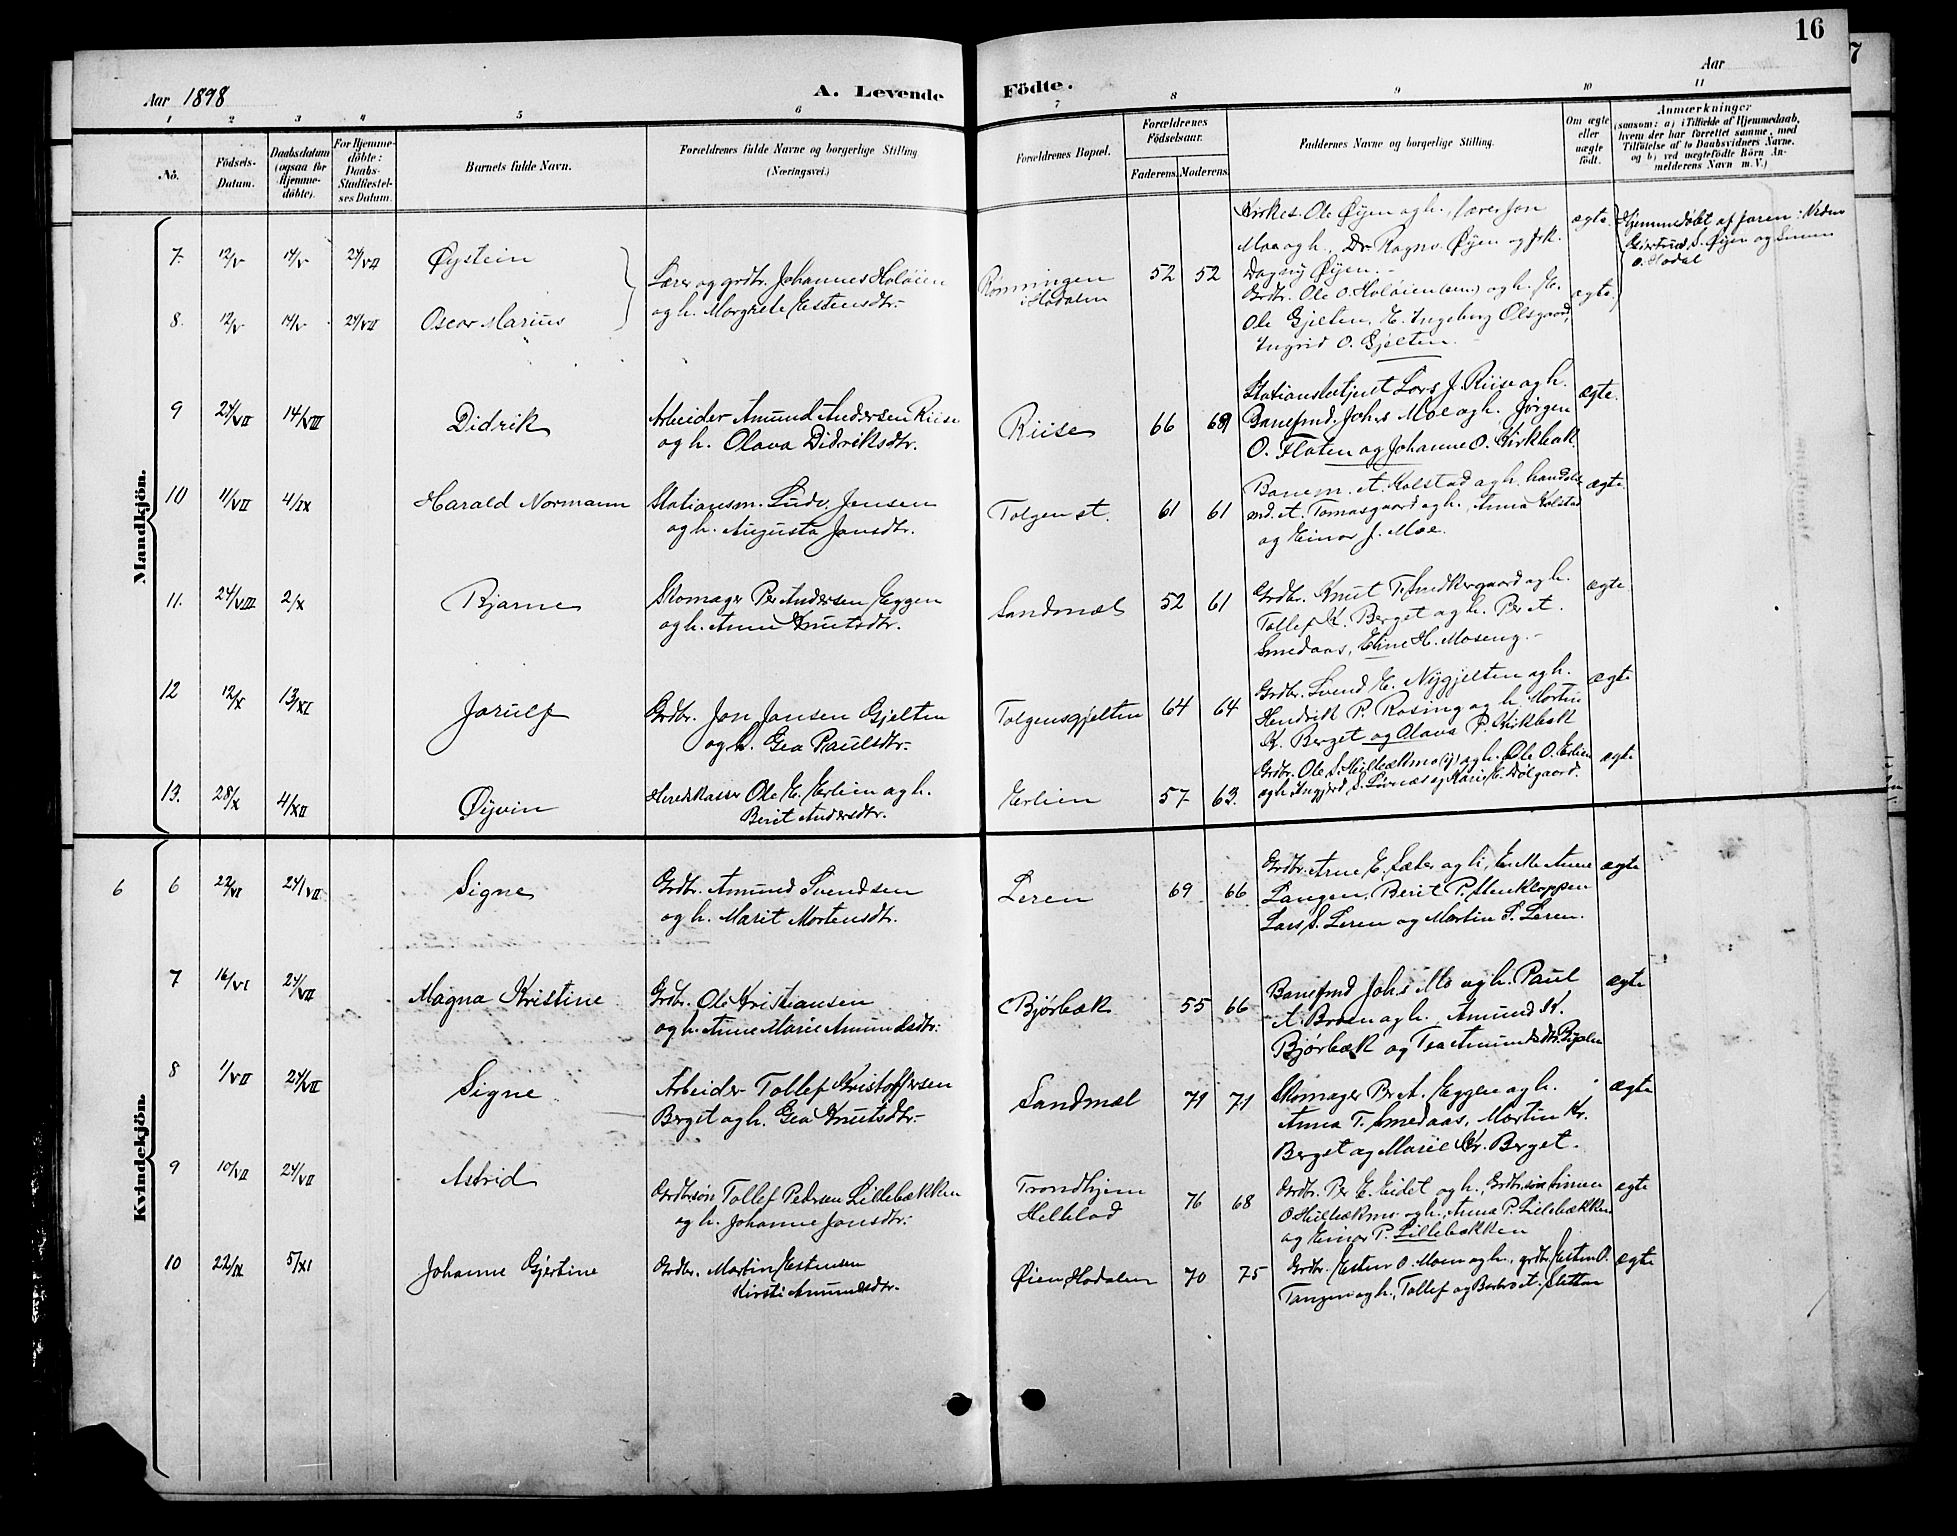 16
7
Aar 1898
A. Levende
Födte.
Aar
1 2 3 4 5 6 7 8 9 10 11
No.
Födsels-
Datum.
Daabsdatum
(ogsaa för
Hjemme-
döbte).
For Hjemme-
döbte:
Daabs-
Stadfæstel-
ses Datum.
Barnets fulde Navn.
Forældrenes fulde Navne og borgerlige Stilling
(Næringsvei.)
Forældrenes Bopæl.
Forældrenes
Födselsaar.
Faderens.
Moderens.
Faddernes Navne og borgerlige Stilling.
Om ægte
eller
uægte
födt.
Anmærkninger
(saasom: a) i Tilfælde af Hjemmedaab,
hvem der har forrettet samme, med
Tilföielse af to Daabsvidners Navne,
og b) ved uægtefödte Börn An-
melderens Navn m. V.)
Mandkjön.
7. 12/V 14/V 24/VII Øystein
Lærer og grdbr. Johannes Holøien
og h. Margrete Estensdtr.
Rønningen
i Hodalen
52 52
Kirkes. Ole Øyen og h., lærer Jon
Moa og h., Dr. Ragnv. Øyen og frk.
Dagny Øyen.-
ægte.
Hjemmedøbt af faren: Vidner
Gjertrud S. Øyen og Simen
O. Hodal
8. 12/V 14/V 24/VII Oscar Marius
Grdbr. Ole O. Holøien (sen.) og h. E.
Ole Gjelten, E. Ingeborg Olsgaard,
Ingrid O. Gjelten
ægte.
9 24/VII 14/VIII Didrik
Arbeider Amund Andersen Riise
og h. Olava Didriksdtr.
Riise
66 69
Stationsbetjent Lars J. Riise og h.
Banefmd. Johs Moe og h. Jørgen
O. Floten og Johanne O. Kirkbak.
ægte.
10 11/VII 4/IX Harald Normann
Stationsm. Ludv. Jensen
og h. Augusta Jansdtr.
Tolgen st.
61 61
Banem. A. Kolstad og h. handels-
md. A. Tomasgaard og h., Anna Kolstad
og Einar J. Moe.
ægte.
11. 24/VIII 2/X Bjarne
Skomager Per Andersen Eggen
og h. Anne Knutsdtr.
Sandmæl
52 61
Grdbr. Knut T. Smedkergaard og h.
Tollef K. Berget og h. Per A.
Smedaas, Eline H. Moseng.-
ægte
12 12/X 13/XI Jorulf
Grdbr. Jon Jonsen Gjelten
og h. Gea Paulsdtr.
Tolgensgjelten
64 64
Grdbr. Svend E. Nygjelten og h.
Hendrik P. Rosing og h. Martin
K. Berget og Olava P. Kirkbak
ægte
13. 28/X 4/XII Øyvin
Heredskasser Ole E. Erlien og h.
Berit Andersdtr.
Erlien
57 63.
Grdbr. Ole S. Hulbækmo og h. Ole O. Erlien
og h. Ingjerd S. Livnæs og Mari E. Dølgaard.
ægte
Kvindekjön.
6 6 22/VI 24/VII Signe
Grdbr. Amund Svendsen
og h. Marit Mortensdtr.
Leren
69 66
Grdbr. Arne E. Sæter og h., Enke Anne
Langen, Berit P. Stenkloppen
Lars S. Leren og Martin S. Leren.
ægte
7 16/VI 24/VII Magna Kristine
Grdbr. Ole Kristiansen
og h. Anne Marie Amundsdtr.
Bjørbæk
55 66
Banefmd Johs Mo og h. Paul
A. Broen og h. Amund K.
Bjørbæk og Tea Amundsdtr.
ægte
8 1/VII 24/VII Signe
Arbeider Tollef Kristoffersen
Berget og h. Gea Knutsdtr.-
Sandmæl
71 71
Skomager Per A. Eggen og h.
Anna T. Smedaas, Martin Kr.
Berget og Marie Kr. Berget.
ægte
9 10/VII 24/VII Astrid
Grdbrsøn Tollef Pedersen Lillebækken
og h. Johanne Jonsdtr.-
Trondhjem
76 68
Grdbr. Per E. Eidet og h., Grdbrsøn Simen
O. Hulbækmo og h., Anna P. Lillebækken
og Einar P. Lillebækken
ægte
10 22/IX 5/XI Johanne Gjertine
Grdbr. Martin Estensen
Kirsti Amundsdtr.
Øien Hodalen
70 75
Grdbr. Esten O. Moen og h., grdbr. Esten O.
Tangen og h., Tollef og Barbro A. Sletten
ægte